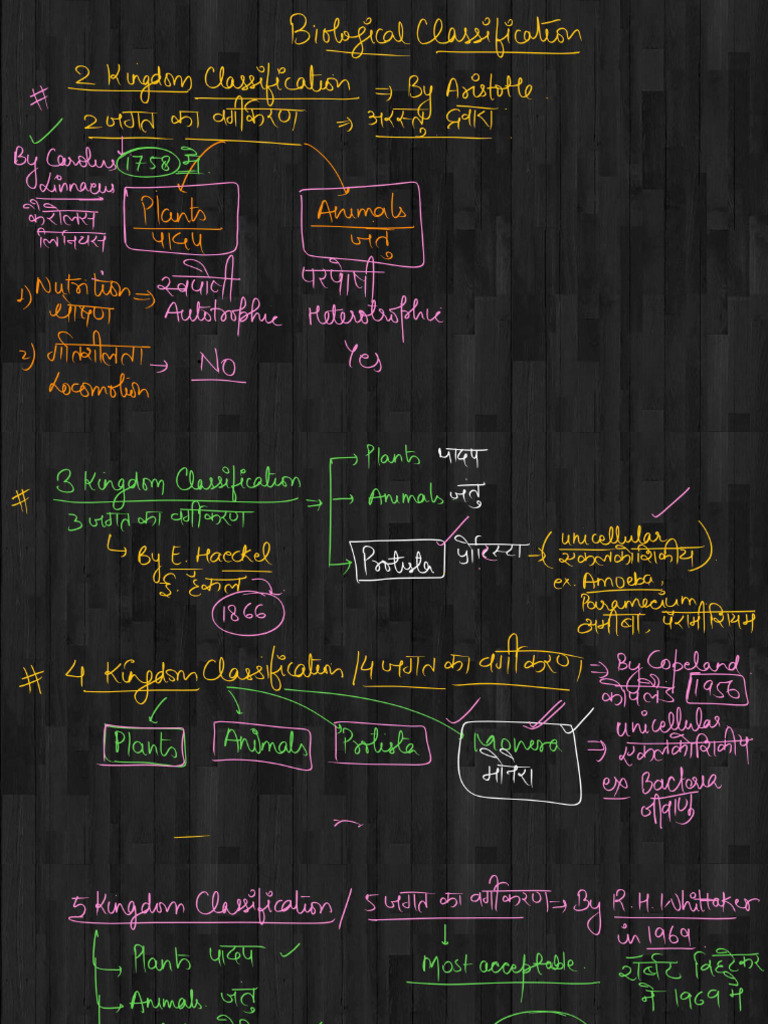 Biological Classification
# 2 Kingdom Classification => By Aristotle
2 जगत का वर्गीकरण => अरस्तु द्वारा
By Carolus 1758 में
Linnaeus
कैरोलस
लिनियस
Plants
पादप
Animals
जंतु
1) Nutrition => स्वपोषी परपोषी
पोषण Autotrophic Heterotrophic
2) गतिशीलता -> No Yes
Locomotion
# 3 Kingdom Classification ->
3 जगत का वर्गीकरण
By E. Haeckel
ई. हैकल ने
1866
Plants पादप
Animals जंतु
Protista प्रोटिस्टा -> (unicellular
एककोशिकीय)
ex. Amoeba,
Paramecium
अमीबा, पैरामीशियम
# 4 Kingdom Classification / 4 जगत का वर्गीकरण => By Copeland
कौपिलैंड 1956
Plants Animals Protista Monera
मोनेरा
=> unicellular
एककोशिकीय
ex Bacteria
जीवाणु
5 Kingdom Classification / 5 जगत का वर्गीकरण -> By R.H. Whittaker
in 1969
Most acceptable
रॉबर्ट व्हिटैकर
ने 1969 में
Plants पादप
Animals जंतु